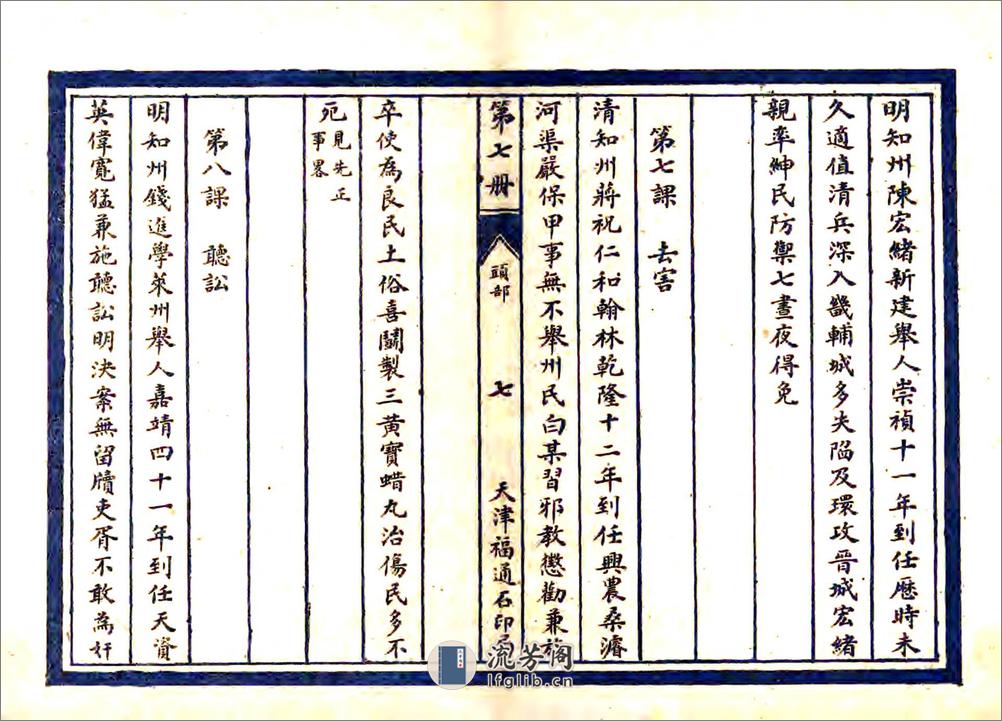 明知州陳宏緒新建舉人崇禎十一年到任歷時未
久適值清兵深入畿輔城多失陷及環攻晉城宏緒
親率紳民防禦七晝夜得免
第七課 去害
清知州蔣祝仁和翰林乾隆十二年到任興農桑濬
河渠嚴保甲事無不舉州民白某習邪教懲勸兼施
第七册 頭部 七 天津福通石印局
卒使為良民土俗喜鬬製三黃寶蜡丸治傷民多不
死見先正
事畧
第八課 聽訟
明知州錢進學萊州舉人嘉靖四十一年到任天資
英偉寬猛兼施聽訟明決案無留牘吏胥不敢為奸
流芳閣
lfglib.cn